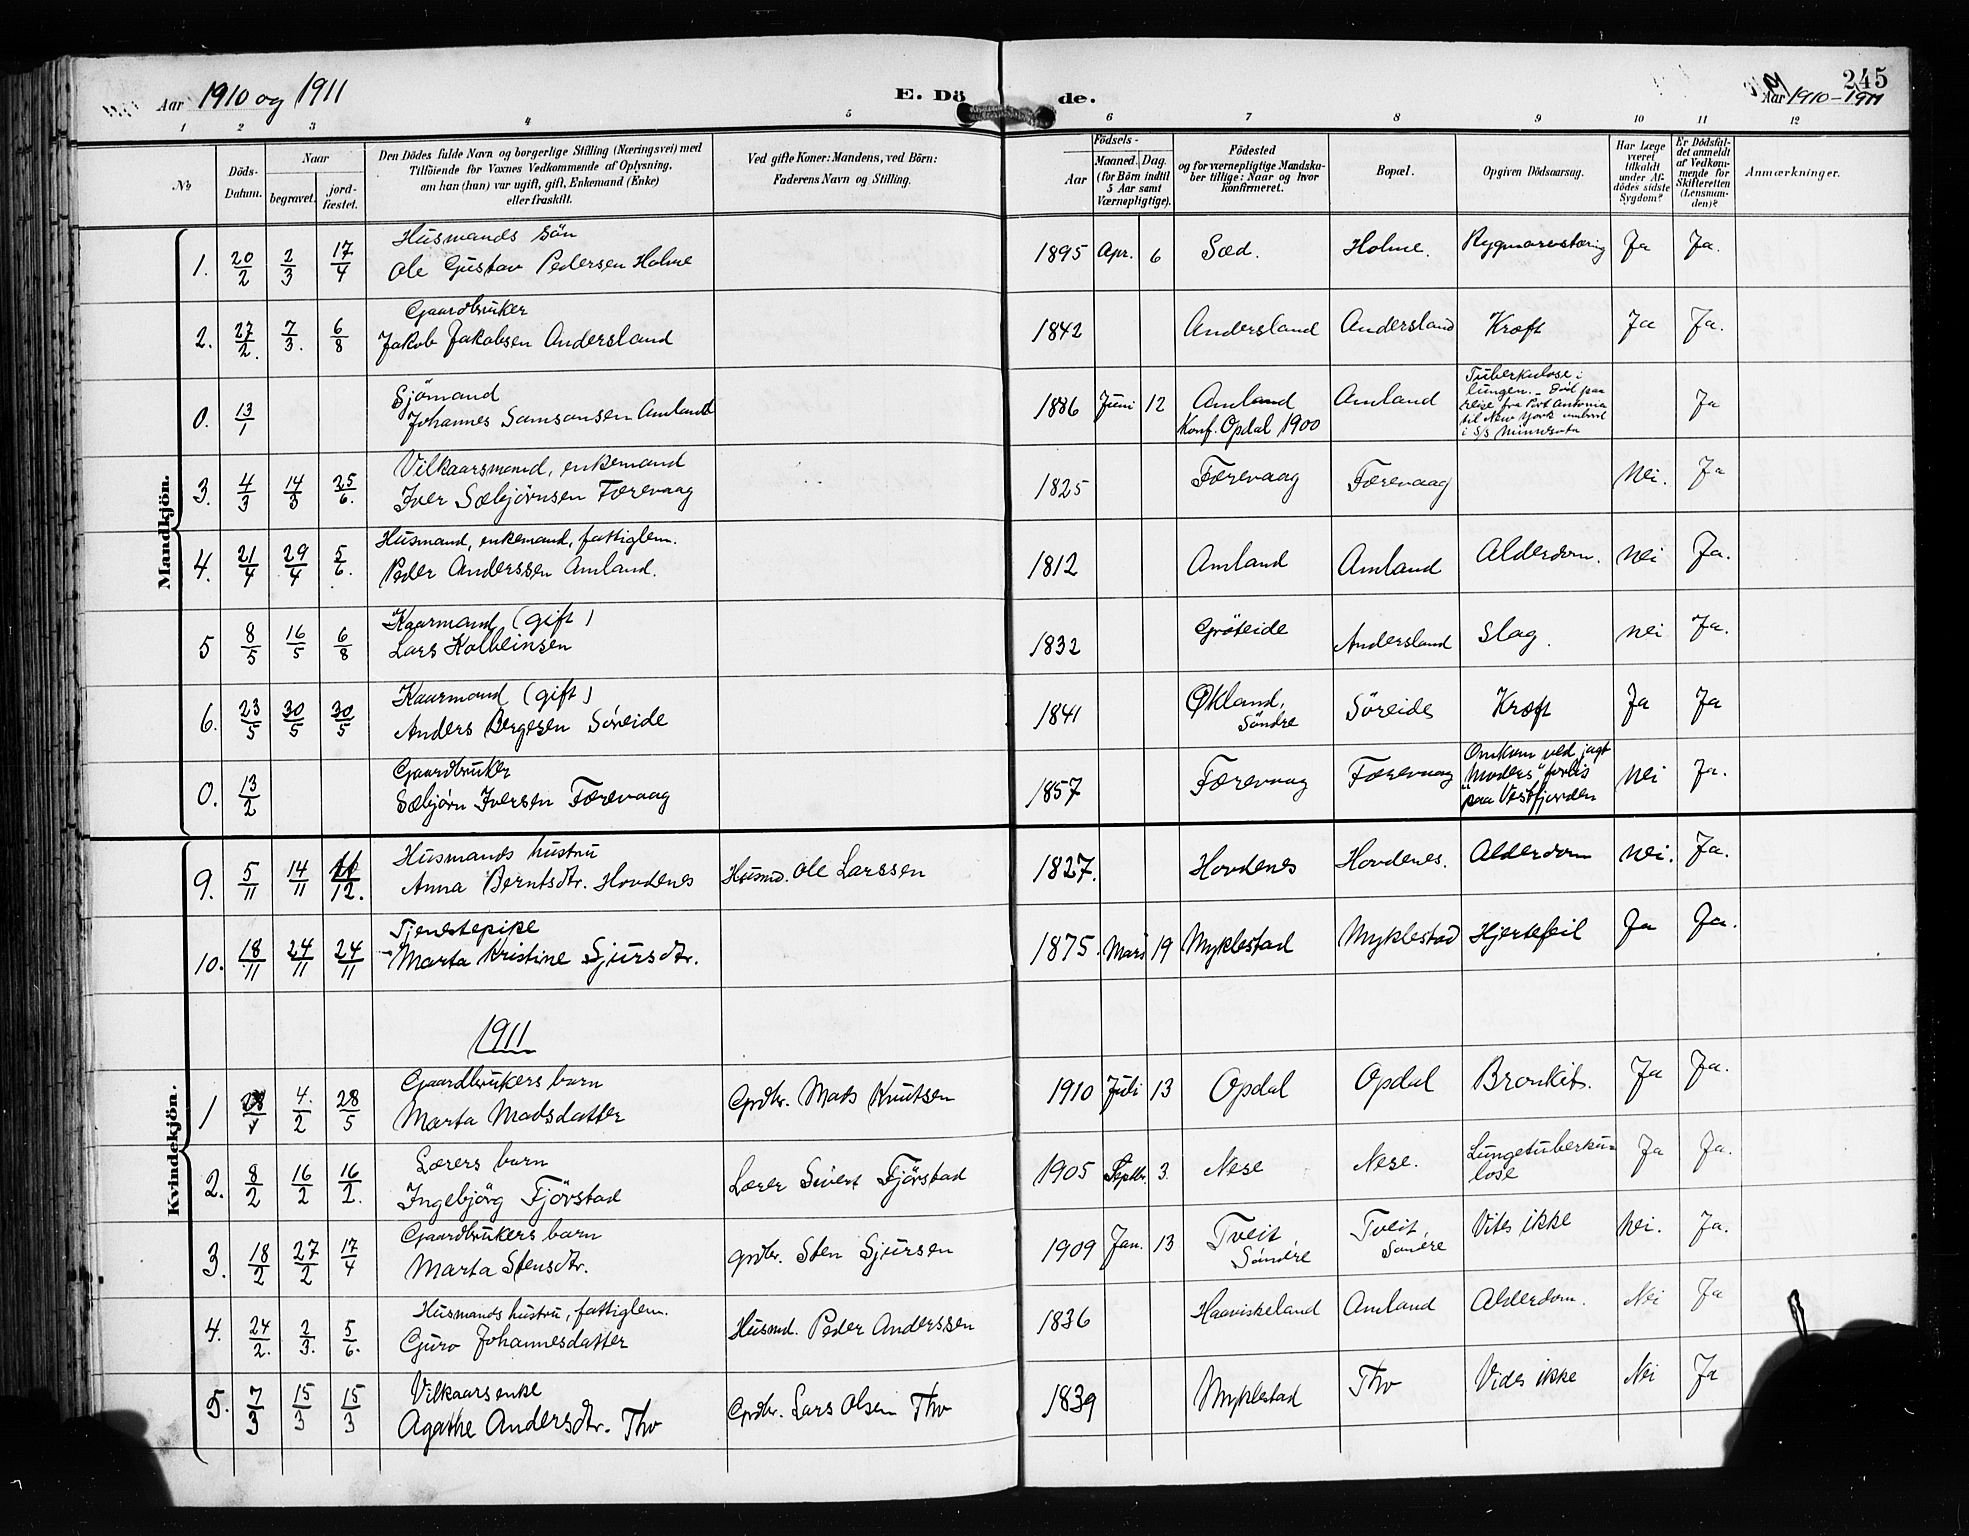 Aar 1910 og 1911
E. Dö de.
245
Aar 1910-1911
1 2 3 4 5 6 7 8 9 10 11 12
No
Döds-Datum.
Naar
begravet.
jord-fæstet.
Den Dödes fulde Navn og borgerlige Stilling (Næringsvei) med
Tilföiende for Voxnes Vedkommende af Oplysning,
om han (hun) var ugift, gift, Enkemand (Enke)
eller fraskilt.
Ved gifte Koner: Mandens, ved Börn:
Faderens Navn og Stilling.
Födsels-
Aar
Maaned. Dag.
(for Börn indtil
5 Aar samt
Værnepligtige).
Födested
og for værnepligtige Mandska-
ber tillige: Naar og hvor
konfirmeret.
Bopæl.
Opgiven Dödsaarsag.
Har Læge
været
tilkaldt
under Af-
dödes sidste
Sygdom?
Er Dödsfal-
det anmeldt
af Vedkom-
mende for
Skifteretten
(Lensman-
den)?
Anmærkninger.
Mandkjön.
Husmands sön
1. 20/2 2/3 17/4 Ole Gustav Pedersen Holme 1895 Apr. 6 Sæd. Holme. Rygmarvstæring Ja Ja.
Gaardbruker
2. 27/2. 7/3. 6/8 Jakob Jakobsen Andersland 1842 Andersland Andersland Kræft Ja Ja.
Sjömand
0. 13/1 Johannes Samsonsen Amland 1886 Juni 12 Amland Konf. Opdal 1900 Amland Tuberkulose i
lungen. - Död paa
reise fra Port Antonia
til New York ombord
i S/S Minnesota
Ja
Vilkaarsmand, enkemand
3. 4/3 14/3 25/6. Iver Sæbjörnsen Færevaag 1825 Færevaag Færevaag Nei. Ja
Husmand, enkemand, fattiglem.
4. 21/4 29/4 5/6. Peder Anderssen Amland. 1812 Amland Amland Alderdom. Nei Ja.
Kaarmand (gift)
5 8/5 16/5 6/8 Lars Kolbeinsen 1832 Gröteide Andersland Slag. Nei Ja.
Kaarmand (gift)
6. 23/5 30/5 30/5 Anders Børgesen Søreide 1841 Økland, Söndre Söreide Kræft Ja Ja
Gaardbruker
0. 13/2 Sæbjörn Iversen Færevaag 1857 Færevaag Færevaag Omkom ved jagt
"Moders" forlis
paa Vestfjorden
Nei Ja.
Kvindekjön.
Husmands hustru
9. 5/11 14/11 11/12. Anna Berntsdtr. Hovdenes Husmd. Ole Larssen 1827. Hovdenes Hovdenes. Alderdom Nei. Ja.
Tjenestepike
10. 18/11 24/11 24/11 Marta Kristine Sjursdtr. 1875. Mars 19 Myklestad Myklestad Hjertefeil Ja Ja.
1911
Gaardbrukers barn
1 4./2 28/5 Marta Madsdatter Grdbr. Mats Knutsen 1910 Juli 13 Opdal Opdal Bronkit. Ja Ja.
Lærers barn
2. 8/2 16/2 16/2. Ingebjörg Fjörstad Lærer Sivert Fjörstad 1905 Septbr. 3. Nese Nese. Lungetuberku-
lose
Ja Ja.
Gaardbrukers barn
3. 18/2 27/2 17/4 Marta Stensdtr. Grdbr. Sten Sjursen 1909 Jan. 13 Tveit Söndre Tveit Söndre Vites ikke Nei. Ja.
Husmands hustru, fattiglem.
4. 24/2. 2/3. 5/6. Guro Johannesdatter Husmd. Peder Anderssen 1836 Haaviskeland Amland Alderdom. Nei Ja
Vilkaarsenke
5. 7/3 15/3 15/3 Agathe Andersdtr. Tho Grdbr. Lars Olsen Tho 1839 Myklestad Tho Vides ikke Nei Ja